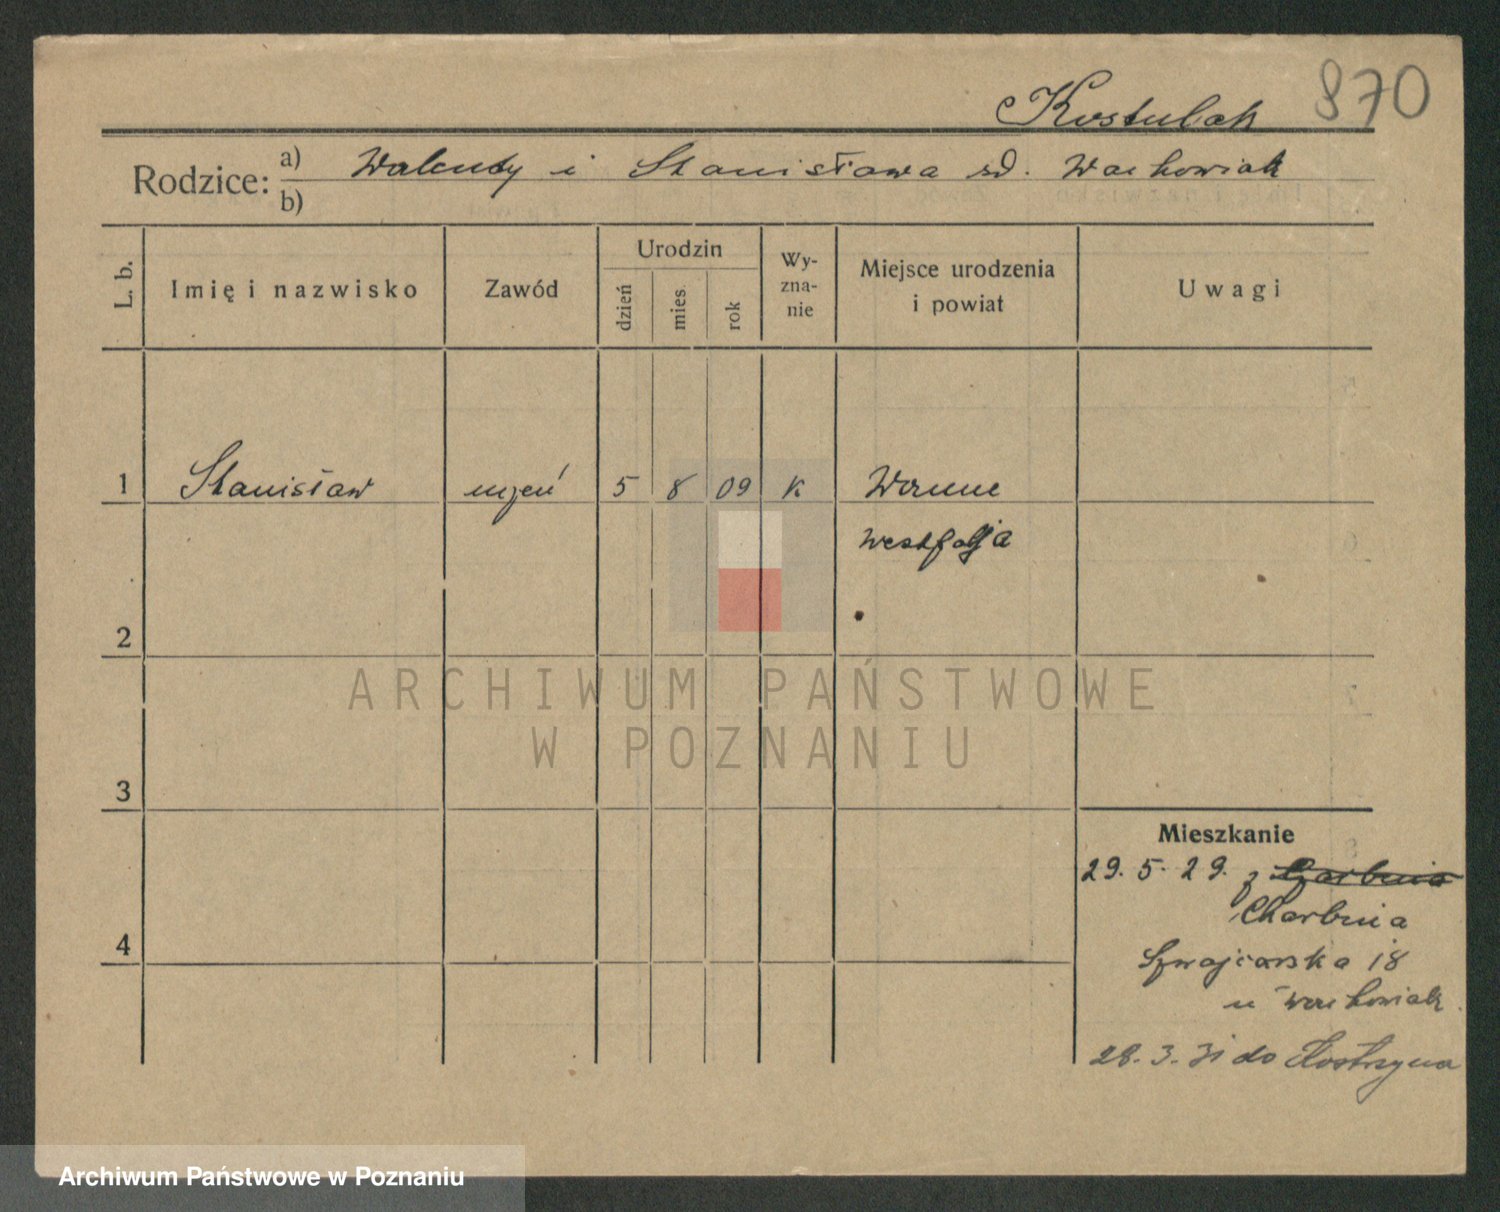 Kostulak 870
Rodzice: a) Walenty i Stanisława z d. Wachowiak
b)
L. b. Imię i nazwisko Zawód Urodzin dzień mies. rok Wy-zna-nie Miejsce urodzenia i powiat Uwagi
1 Stanisław uczeń 5 8 09 K Wanne
Westfalja
2
ARCHIWUM PAŃSTWOWE
W POZNANIU
3
Mieszkanie
29. 5. 29. z
Charbnia
4
Szwajcarska 18
u Wachowiak
28. 3. 31 do Kostrzyna
Archiwum Państwowe w Poznaniu